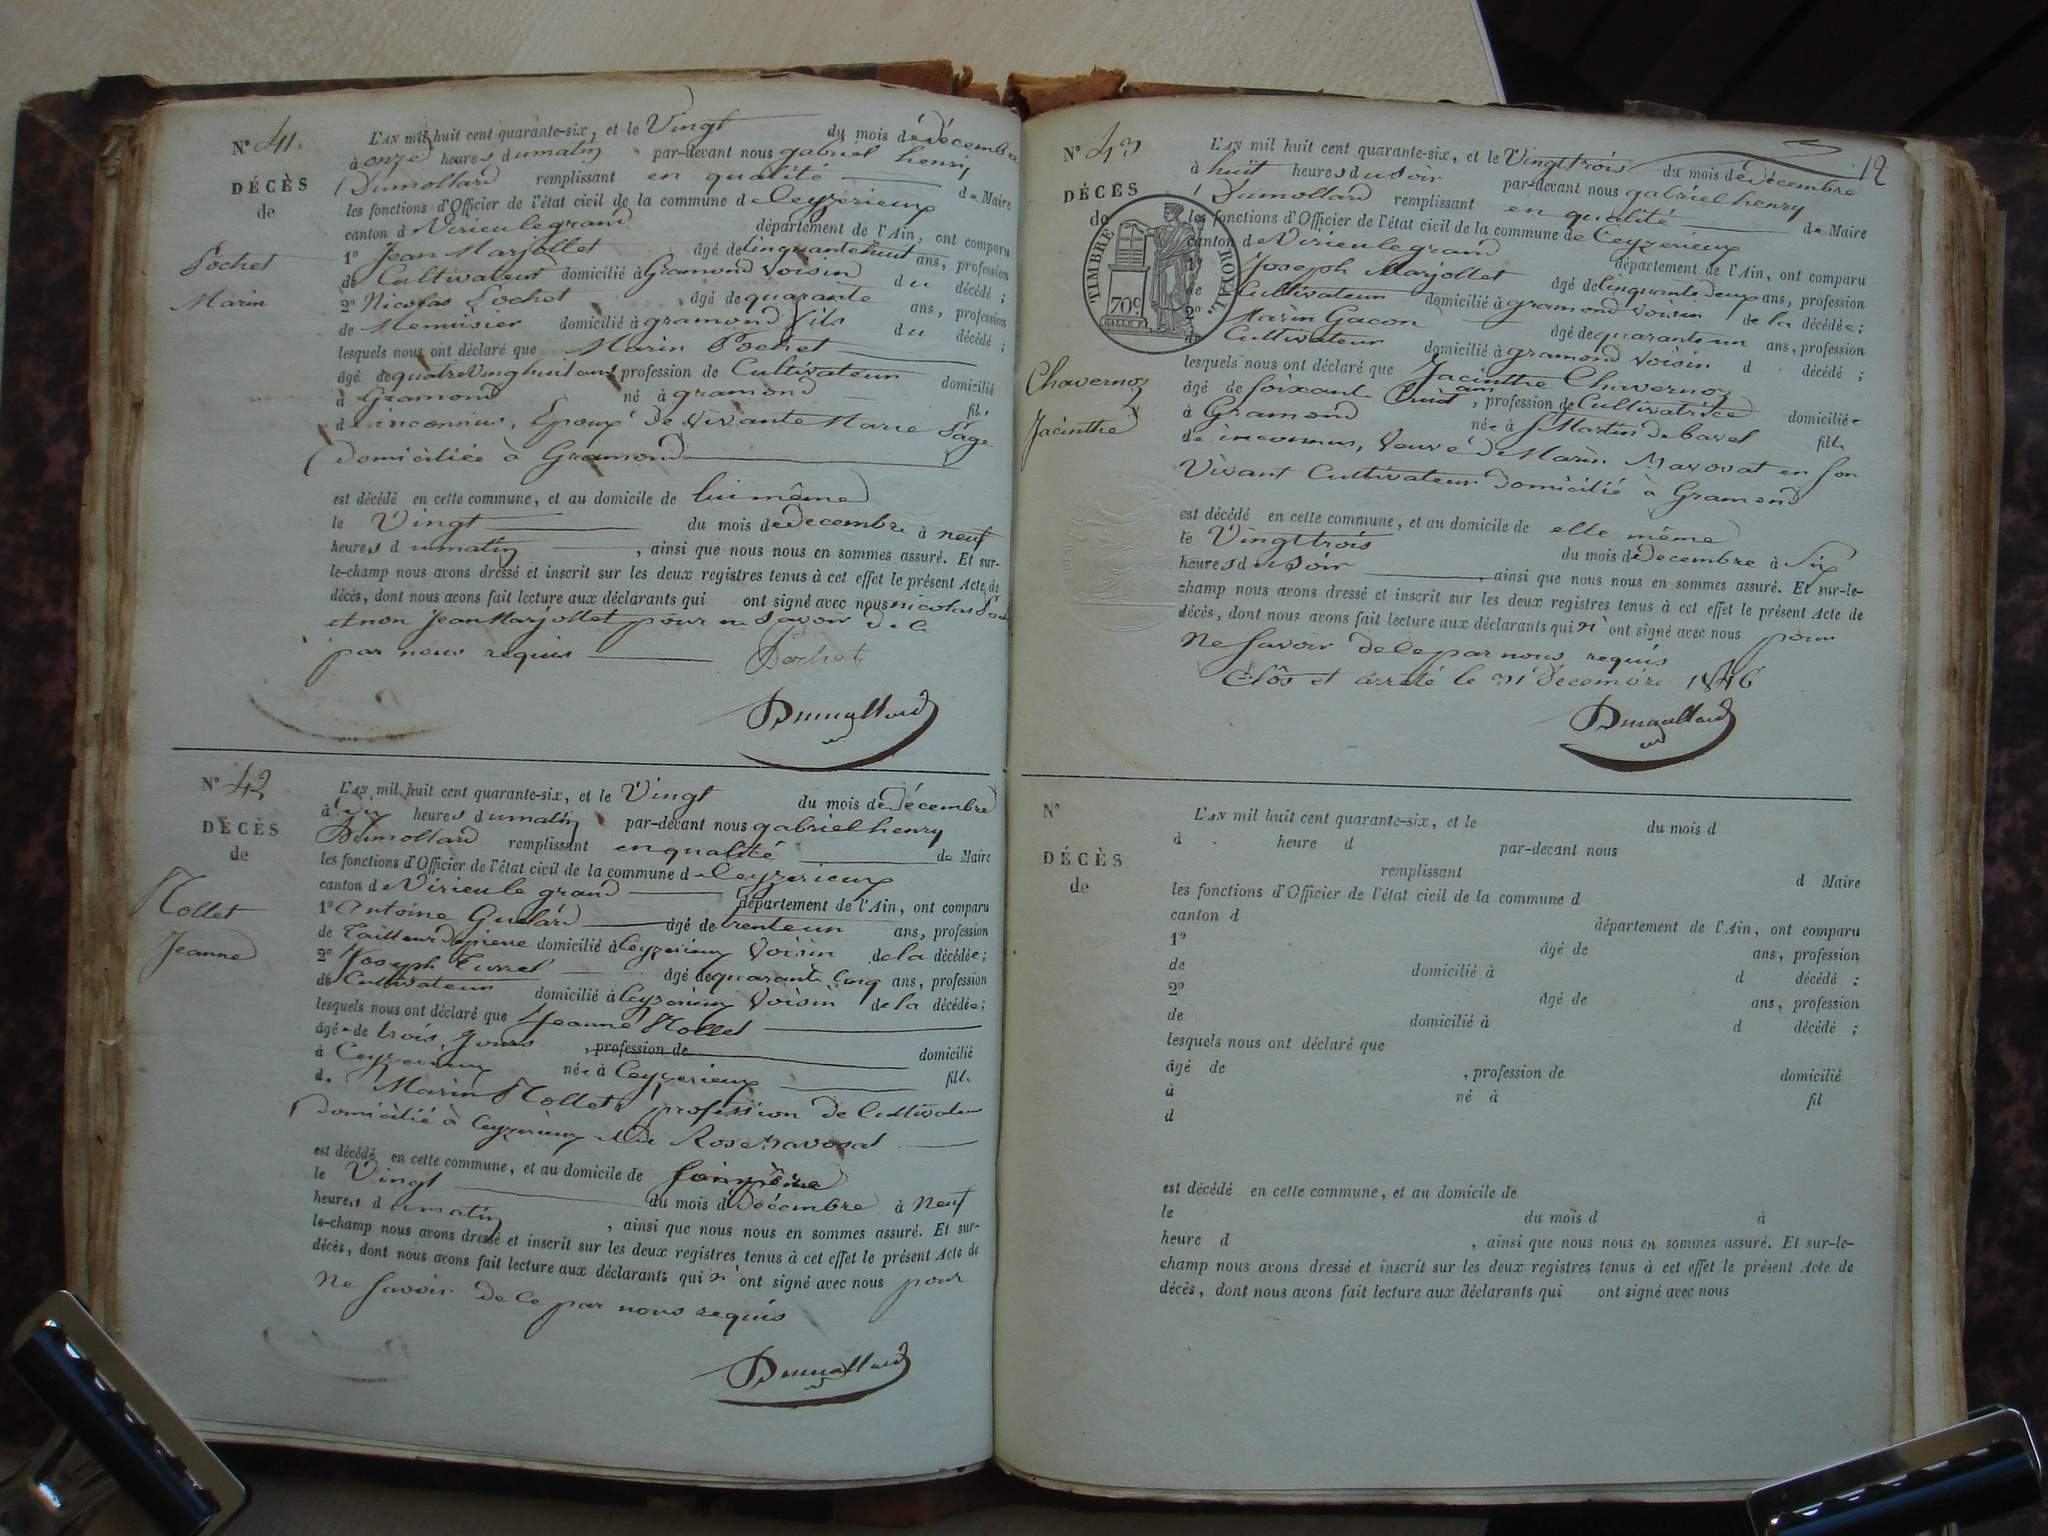 N° 41.
DÉCÈS
de
Pochet
Marin
L'AN mil huit cent quarante-six, et le Vingt du mois de décembre
à onze heures du matin par-devant nous gabriel henri
Dumollard remplissant en qualité de Maire
les fonctions d'Officier de l'état civil de la commune de Ceyzerieux
canton d Virieu le grand département de l'Ain, ont comparu
1° Jean Marjollet âgé de Cinquante huit ans, profession
de Cultivateur domicilié à Gramond Voisin du décédé ;
2° Nicolas Pochet âgé de quarante ans, profession
de Menuisier domicilié à gramond fils du décédé ;
lesquels nous ont déclaré que Marin Pochet
âgé de quatre Vingt huit ans profession de Cultivateur domicilié
à Gramond né à gramond fils
d inconnus, Epoux de Vivante Marie Page
domiciliée à Gramond
est décédé en cette commune, et au domicile de lui même
le Vingt du mois de decembre à neuf
heures du matin, ainsi que nous nous en sommes assuré. Et sur-
le-champ nous avons dressé et inscrit sur les deux registres tenus à cet effet le présent Acte de
décès, dont nous avons fait lecture aux déclarants qui ont signé avec nous nicolas
et non Jean Marjollet pour ne Savoir de ce
par nous requis Pochet
Dumollard
N° 42
DÉCÈS
de
Mollet
Jeanne
L'AN mil huit cent quarante-six, et le Vingt du mois de décembre
à Dix heures du matin par-devant nous gabriel henry
Dumollard remplissant en qualité de Maire
les fonctions d'Officier de l'état civil de la commune de Ceyzerieux
canton de Virieu le grand département de l'Ain, ont comparu
1° Antoine Guelard âgé de trente un ans, profession
de Tailleur de pierre domicilié à Ceyzerieux Voisin de la décédée ;
2° Joseph Turrel âgé de quarante Cinq ans, profession
de Cultivateur domicilié à Ceyzerieux Voisin de la décédée ;
lesquels nous ont déclaré que Jeanne Mollet
âgée de trois Jours, profession de domicilié
à Ceyzerieux née à Ceyzerieux fille
d. Marin Mollet, profession de Cultivateur
domicilié à Ceyzerieux et de Rose Maronat
est décédé en cette commune, et au domicile de Son père
le Vingt du mois de décembre à Neuf
heures d umatin, ainsi que nous nous en sommes assuré. Et sur-
le-champ nous avons dressé et inscrit sur les deux registres tenus à cet effet le présent Acte de
décès, dont nous avons fait lecture aux déclarants qui n'ont signé avec nous pour
Ne Savoir de ce par nous requis
Dumollard
12
N° 43
DÉCÈS
de
TIMBRE ROYAL
70c
Chavernoz
Jacinthe
L'AN mil huit cent quarante-six, et le Vingt trois du mois de décembre
à huit heures du soir par-devant nous gabriel henry
Dumollard remplissant en qualité de Maire
les fonctions d'Officier de l'état civil de la commune de Ceyzerieux
canton de Virieu le grand département de l'Ain, ont comparu
1° Joseph Marjollet âgé de Cinquante deux ans, profession
de Cultivateur domicilié à gramond Voisin de la décédée ;
2° Marin Gacon âgé de quarante un ans, profession
de Cultivateur domicilié à gramond Voisin d décédé ;
lesquels nous ont déclaré que Jacinthe Chavernoz
âgé de Soixante huit ans, profession de Cultivatrice domiciliée
à Gramond née à St Martin de bavel fille
de inconnus, Veuve de Marin Maronat en Son
Vivant Cultivateur domicilié à Gramond
est décédé en cette commune, et au domicile de elle même
le Vingt trois du mois de decembre à Six
heures du soir, ainsi que nous nous en sommes assuré. Et sur-le-
champ nous avons dressé et inscrit sur les deux registres tenus à cet effet le présent Acte de
décès, dont nous avons fait lecture aux déclarants qui n'ont signé avec nous pour
Ne Savoir de ce par nous requis
Clôs et arrêté le 31 décembre 1846
Dumollard
N°
DÉCÈS
de
L'AN mil huit cent quarante-six, et le du mois d
à heure d par-devant nous
remplissant d Maire
les fonctions d'Officier de l'état civil de la commune d
canton d département de l'Ain, ont comparu
1° âgé de ans, profession
de domicilié à d décédé :
2° âgé de ans, profession
de domicilié à d décédé ;
lesquels nous ont déclaré que
âgé de , profession de domicilié
à né à fil
d
est décédé en cette commune, et au domicile de
le du mois d à
heure d , ainsi que nous nous en sommes assuré. Et sur-le-
champ nous avons dressé et inscrit sur les deux registres tenus à cet effet le présent Acte de
décès, dont nous avons fait lecture aux déclarants qui ont signé avec nous